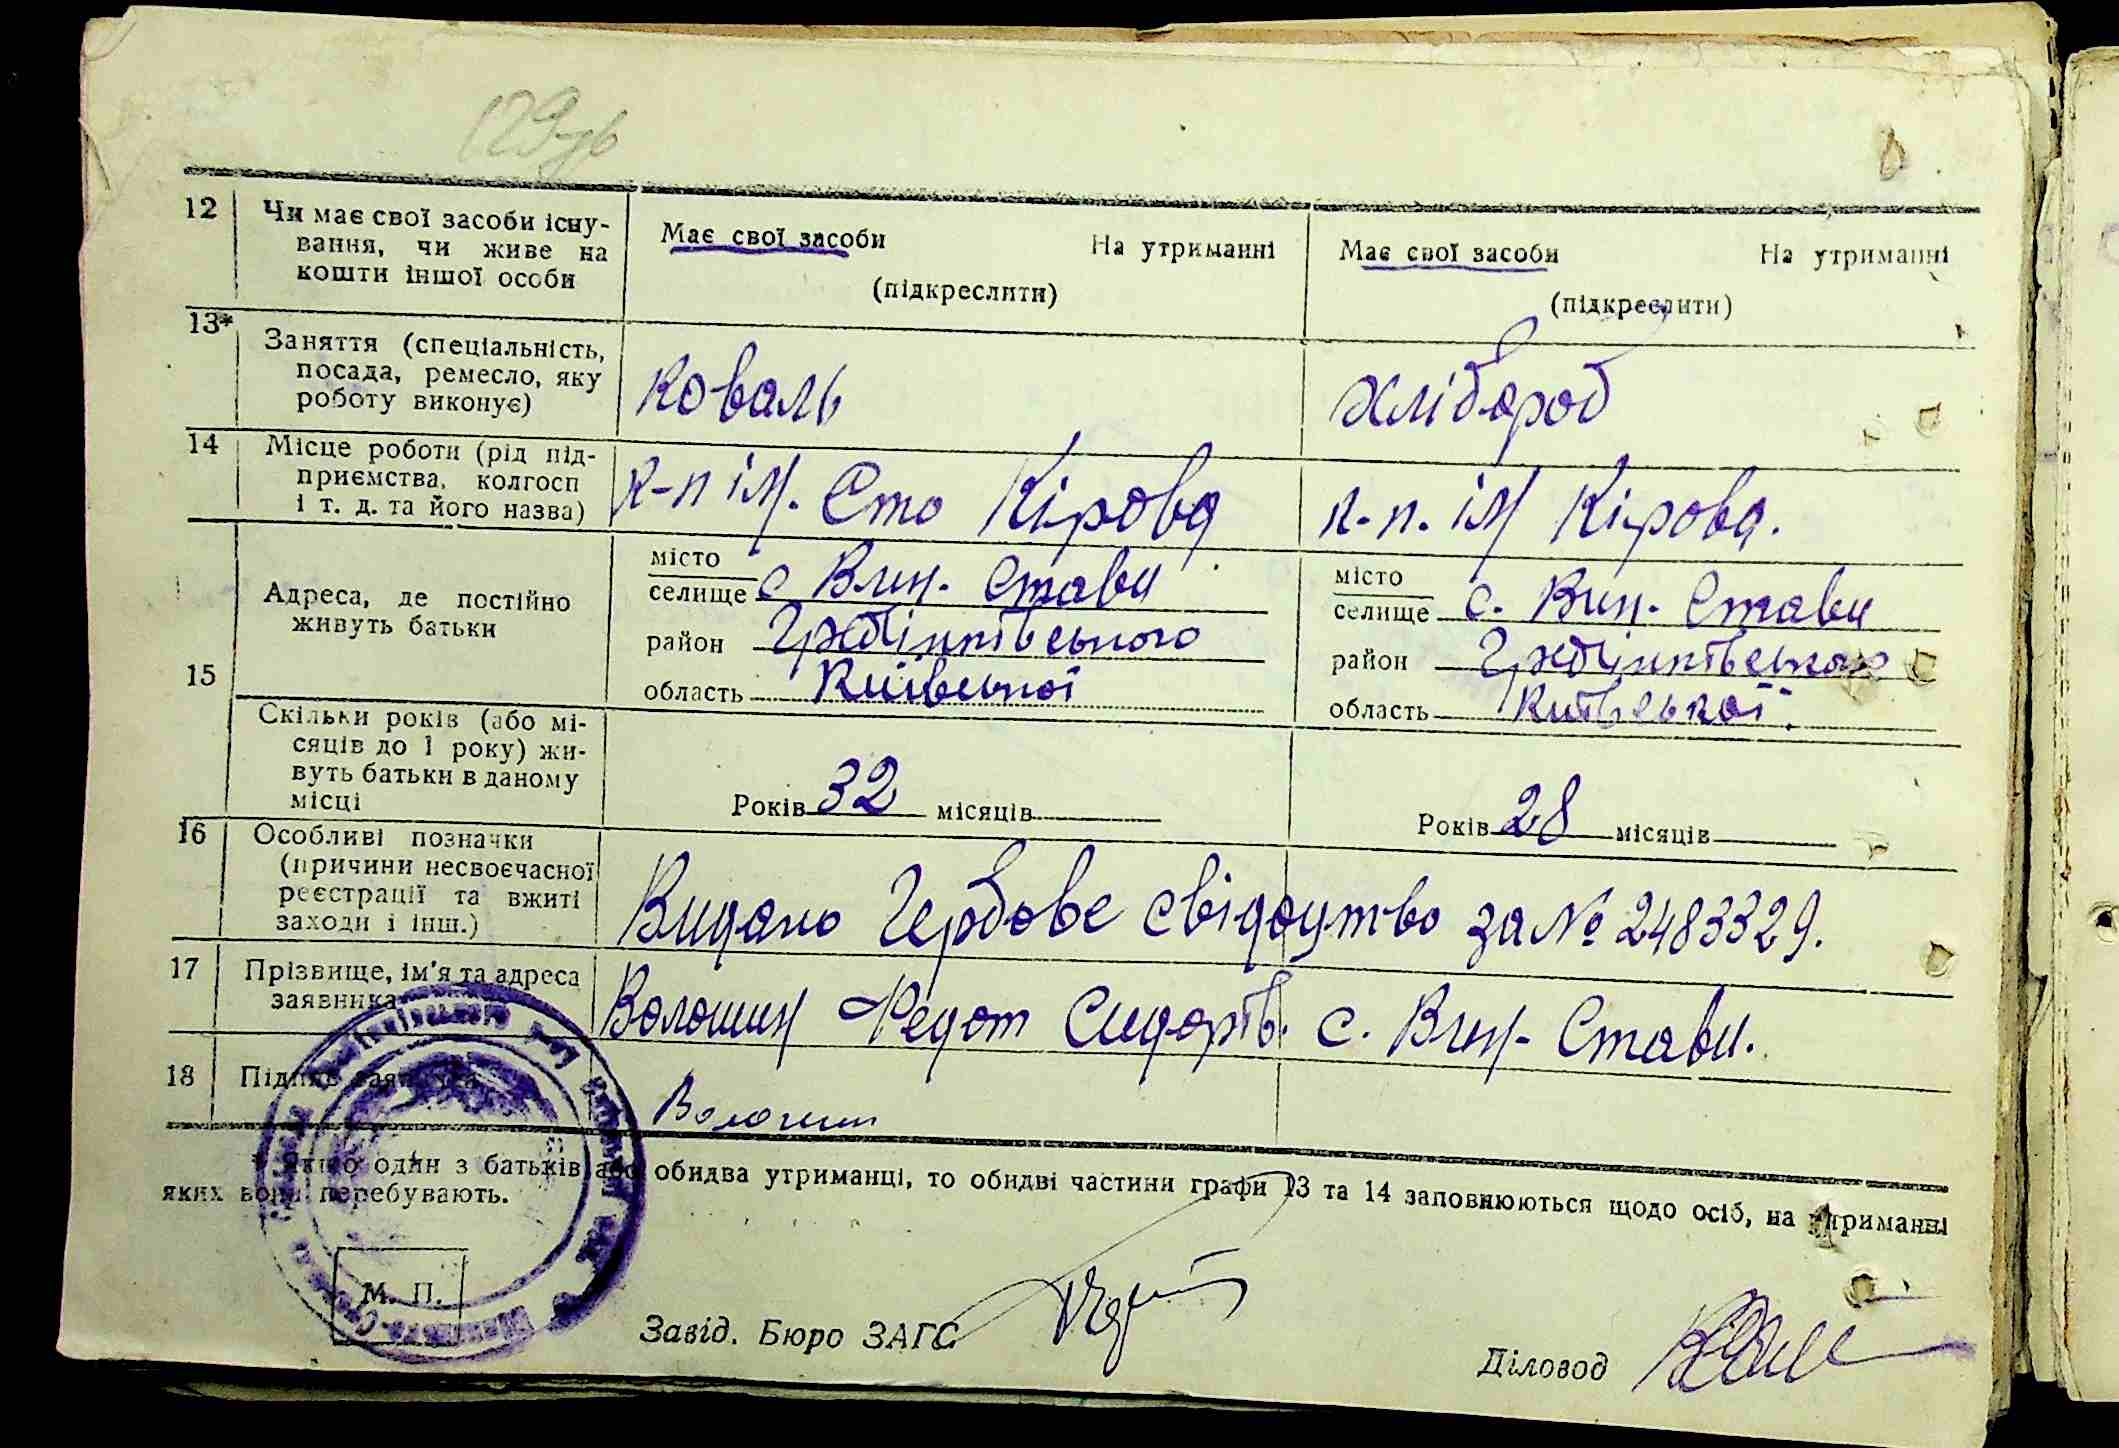 129зв
12 Чи має свої засоби існу-
вання, чи живе на
кошти іншої особи
Має свої засоби На утриманні
(підкреслити)
Має свої засоби На утриманні
(підкреслити)
13* Заняття (спеціальність,
посада, ремесло, яку
роботу виконує)
коваль
хлібороб
14 Місце роботи (рід під-
приємства, колгосп
і т. д. та його назва)
к-п ім. Сто Кірова
к-п. ім Кірова.
15 Адреса, де постійно
живуть батьки
місто
селище с Вин. Стави
район Гребінківського
область Київської
місто
селище с. Вин. Стави
район Гребінківського
область Київської.
Скільки років (або мі-
сяців до 1 року) жи-
вуть батьки в даному
місці
Років 32 місяців
Років 28 місяців
16 Особливі позначки
(причини несвоєчасної
реєстрації та вжиті
заходи і інш.)
Видано Гербове свідоцтво за № 2483329.
17 Прізвище, ім'я та адреса
заявника
Волошин Федот Сидорів. с. Вин. Стави.
18 Підпис заявника
Волошин
* Якщо один з батьків або обидва утриманці, то обидві частини графи 13 та 14 заповнюються щодо осіб, на утриманні
яких вони перебувають.
М. П.
Завід. Бюро ЗАГС
Діловод